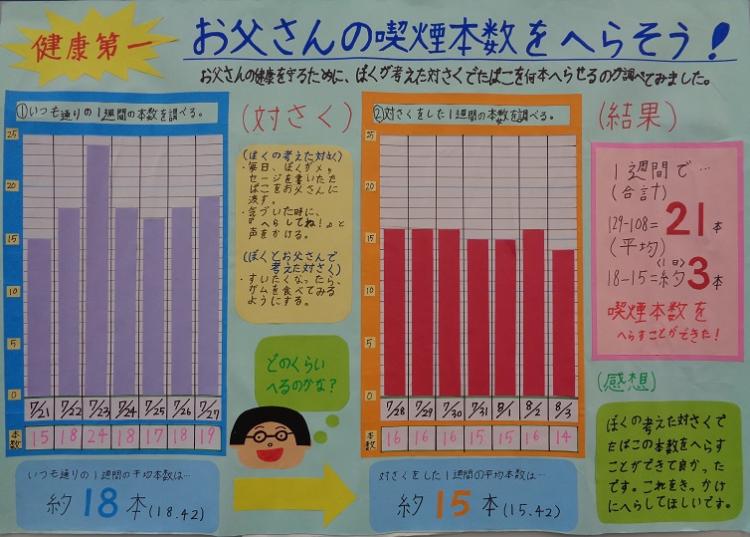 健康第一
お父さんの喫煙本数をへらそう!
お父さんの健康を守るために、ぼくが考えた対さくでたばこを何本へらせるのか調べてみました。
①いつも通りの1週間の本数を調べる。
25
20
15
10
5
0
7/21 7/22 7/23 7/24 7/25 7/26 7/27
本数 15 18 24 18 17 18 19
いつも通りの1週間の平均本数は…
約18本(18.42)
(対さく)
(ぼくの考えた対さく)
・毎日、ぼくがメッ
セージを書いたた
ばこをお父さんに
渡す。
・気づいた時に、
『へらしてね!』と
声をかける。
(ぼくとお父さんで
考えた対さく)
・すいたくなったら、
ガムを食べてみる
ようにする。
どのくらい
へるのかな?
②対さくをした1週間の本数を調べる。
25
20
15
10
5
0
7/28 7/29 7/30 7/31 8/1 8/2 8/3
本数 16 16 16 15 15 16 14
対さくをした1週間の平均本数は…
約15本(15.42)
(結果)
1週間で…
(合計)
129-108=21本
(平均)
(1日)
18-15=約3本
喫煙本数を
へらすことができた!
(感想)
ぼくの考えた対さくで
たばこの本数をへらす
ことができて良かった
です。これをきっかけ
にへらしてほしいです。